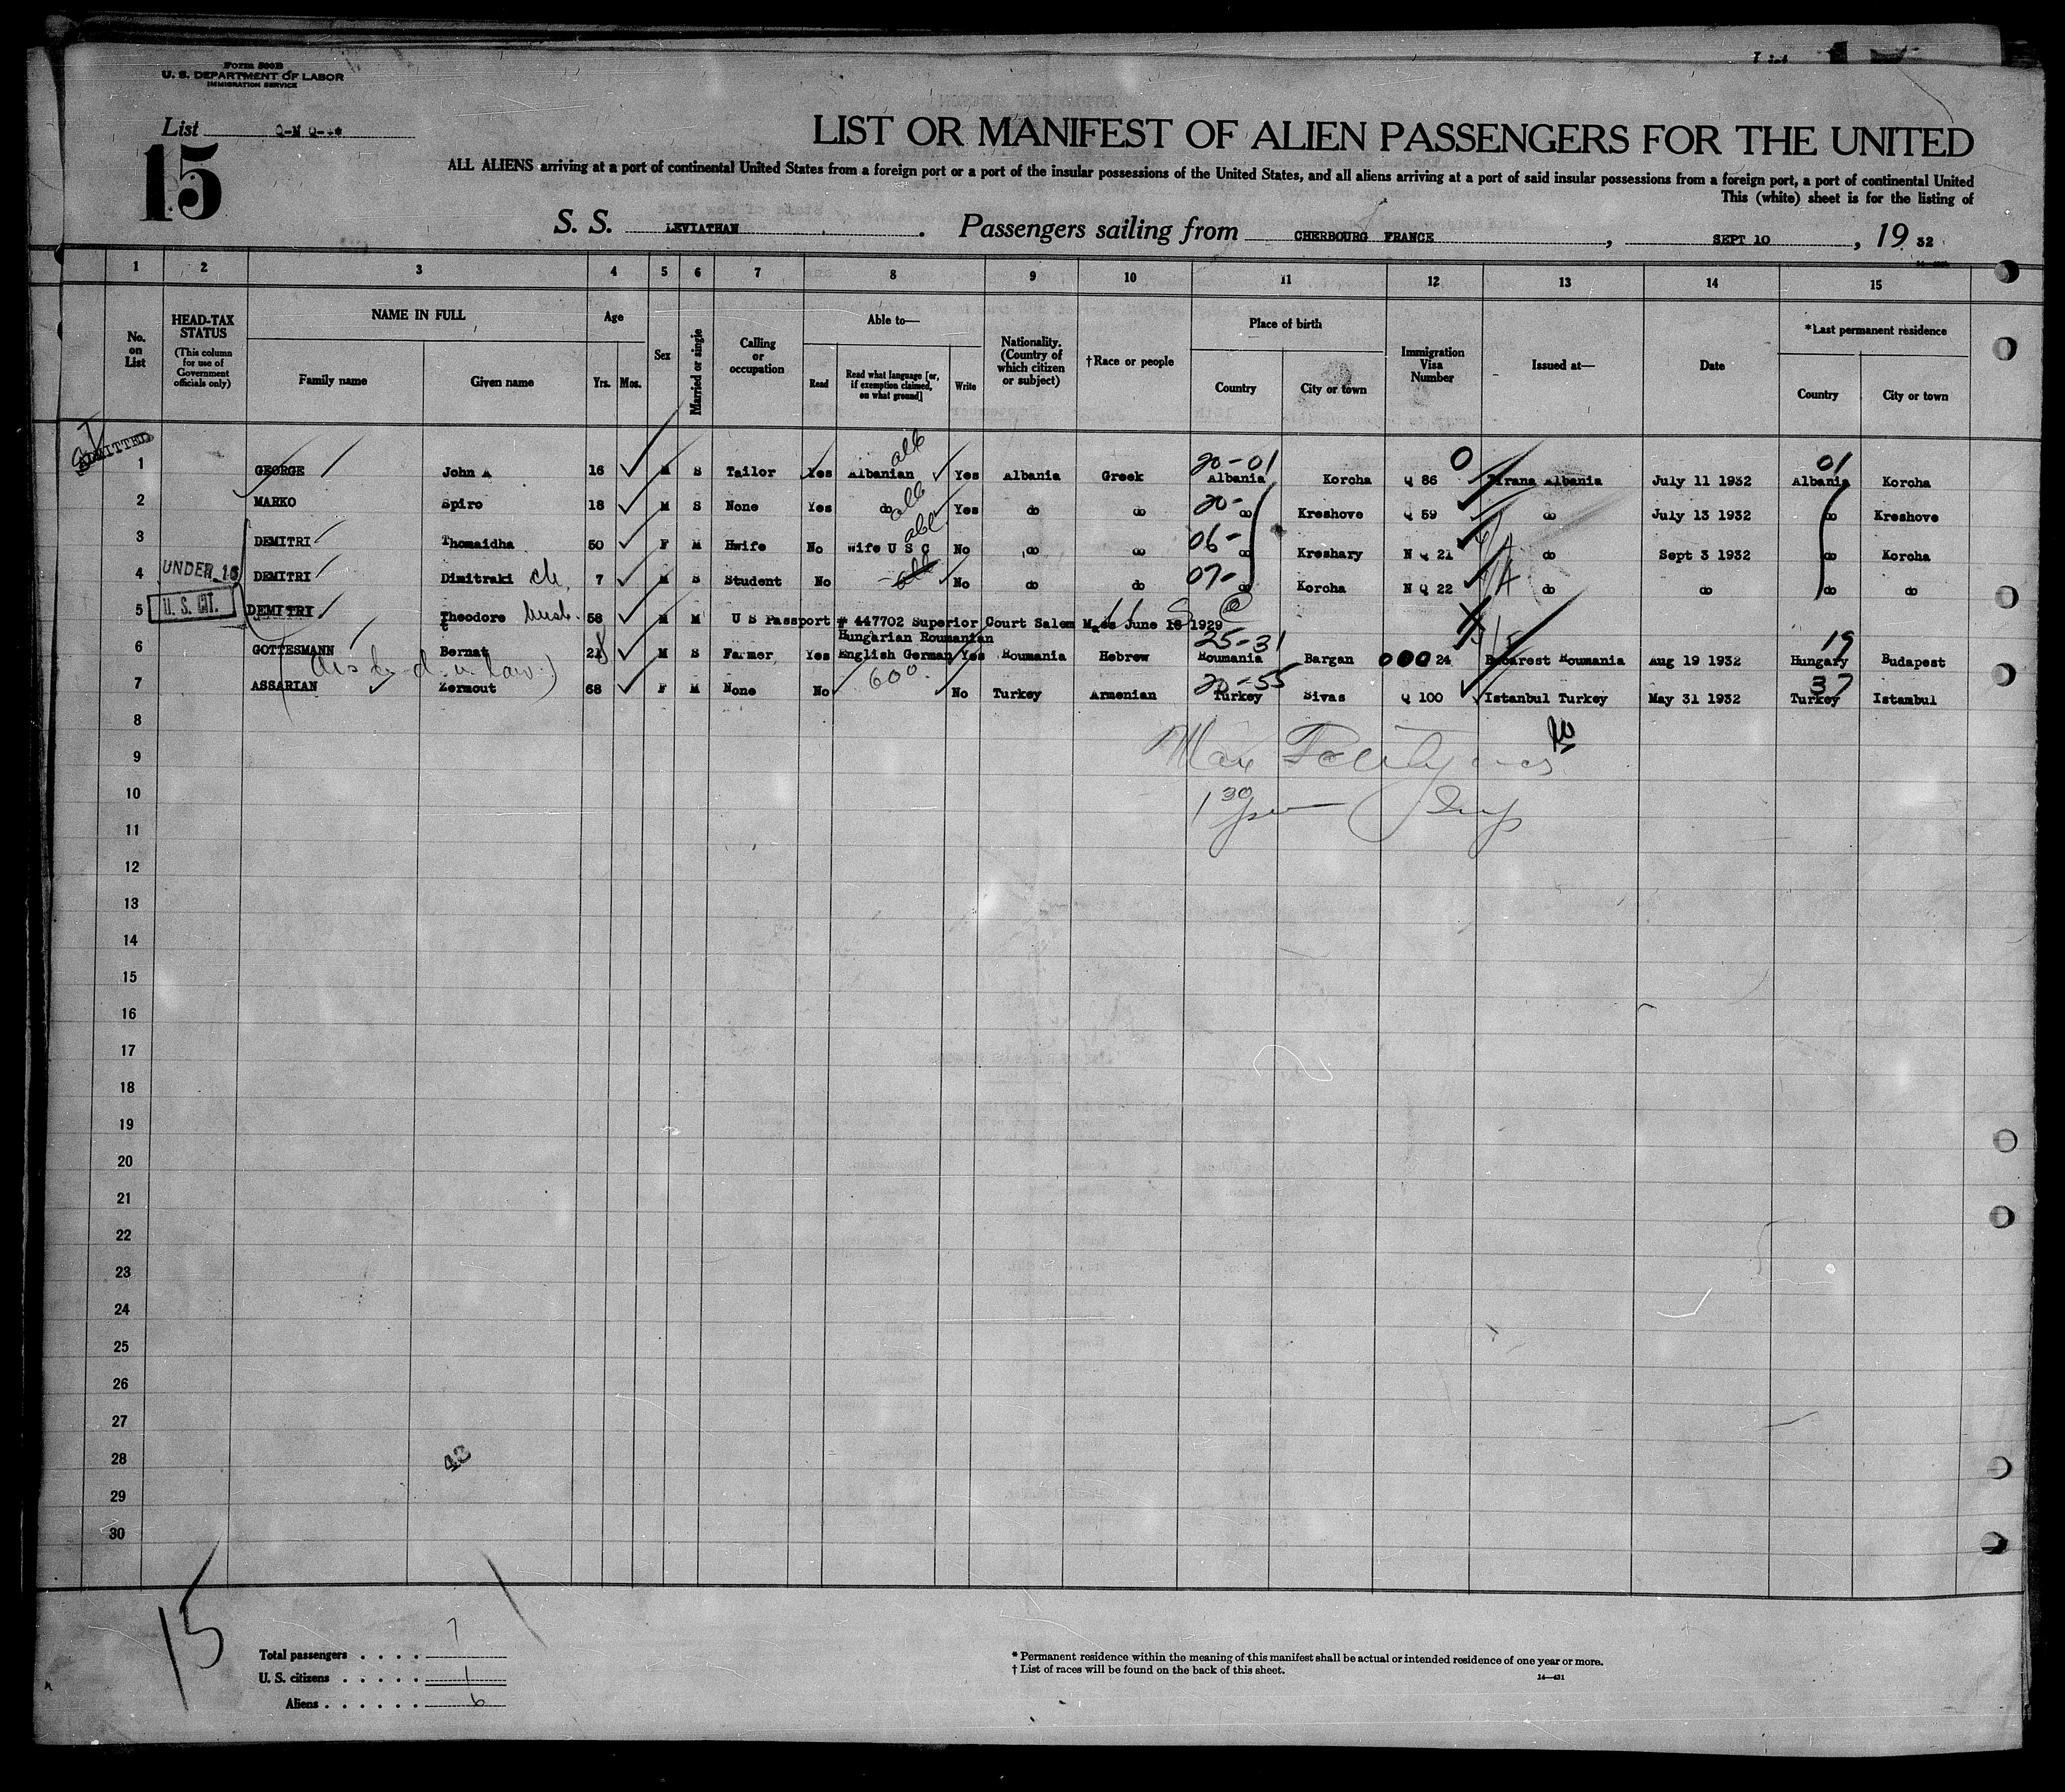 Form 500B
U. S. DEPARTMENT OF LABOR
IMMIGRATION SERVICE
List
15
LIST OR MANIFEST OF ALIEN PASSENGERS FOR THE UNITED
ALL ALIENS arriving at a port of continental United States from a foreign port or a port of the insular possessions of the United States, and all aliens arriving at a port of said insular possessions from a foreign port, a port of continental United
This (white) sheet is for the listing of
S. S. LEVIATHAN. Passengers sailing from CHERBOURG FRANCE, SEPT 10, 19 32
1 2 3 4 5 6 7 8 9 10 11 12 13 14 15
No. on List
HEAD-TAX STATUS (This column for use of Government officials only)
NAME IN FULL Family name Given name
Age Yrs. Mos.
Sex
Married or single
Calling or occupation
Able to— Read Read what language [or, if exemption claimed, on what ground] Write
Nationality. (Country of which citizen or subject)
†Race or people
Place of birth Country City or town
Immigration Visa Number
Issued at—
Date
*Last permanent residence Country City or town
ADMITTED
alb 20-01 0 01
1 GEORGE John A 16 M S Tailor Yes Albanian Yes Albania Greek Albania Korcha Q 86 Tirana Albania July 11 1932 Albania Korcha
alb 20-
2 MARKO Spiro 18 M S None Yes do Yes do do do Kreshove Q 59 do July 13 1932 do Kreshove
06-
3 DEMITRI Thomaidha 50 F M Hwife No wife U S C No do do do Kreshary N Q 21 do Sept 3 1932 do Korcha
UNDER 16
07-
4 DEMITRI Dimitraki ch. 7 M S Student No No do do do Korcha N Q 22 do do do do
U. S. CIT.
5 DEMITRI Theodore husb. 58 M M U S Passport # 447702 Superior Court Salem Mass June 18 1929
Hungarian Roumanian 25-31 19
6 GOTTESMANN Bernat M S Farmer Yes English German Yes Roumania Hebrew Roumania Bargan 24 Bucarest Roumania Aug 19 1932 Hungary Budapest
600 20-55 37
7 ASSARIAN Zermout 68 F M None No No Turkey Armenian Turkey Sivas Q 100 Istanbul Turkey May 31 1932 Turkey Istambul
8
9
10
11
12
13
14
15
16
17
18
19
20
21
22
23
24
25
26
27
28
29
30
48
15
Total passengers . . . . 7
U. S. citizens . . . . . 1
Aliens . . . . . . 6
* Permanent residence within the meaning of this manifest shall be actual or intended residence of one year or more.
† List of races will be found on the back of this sheet.
14—431